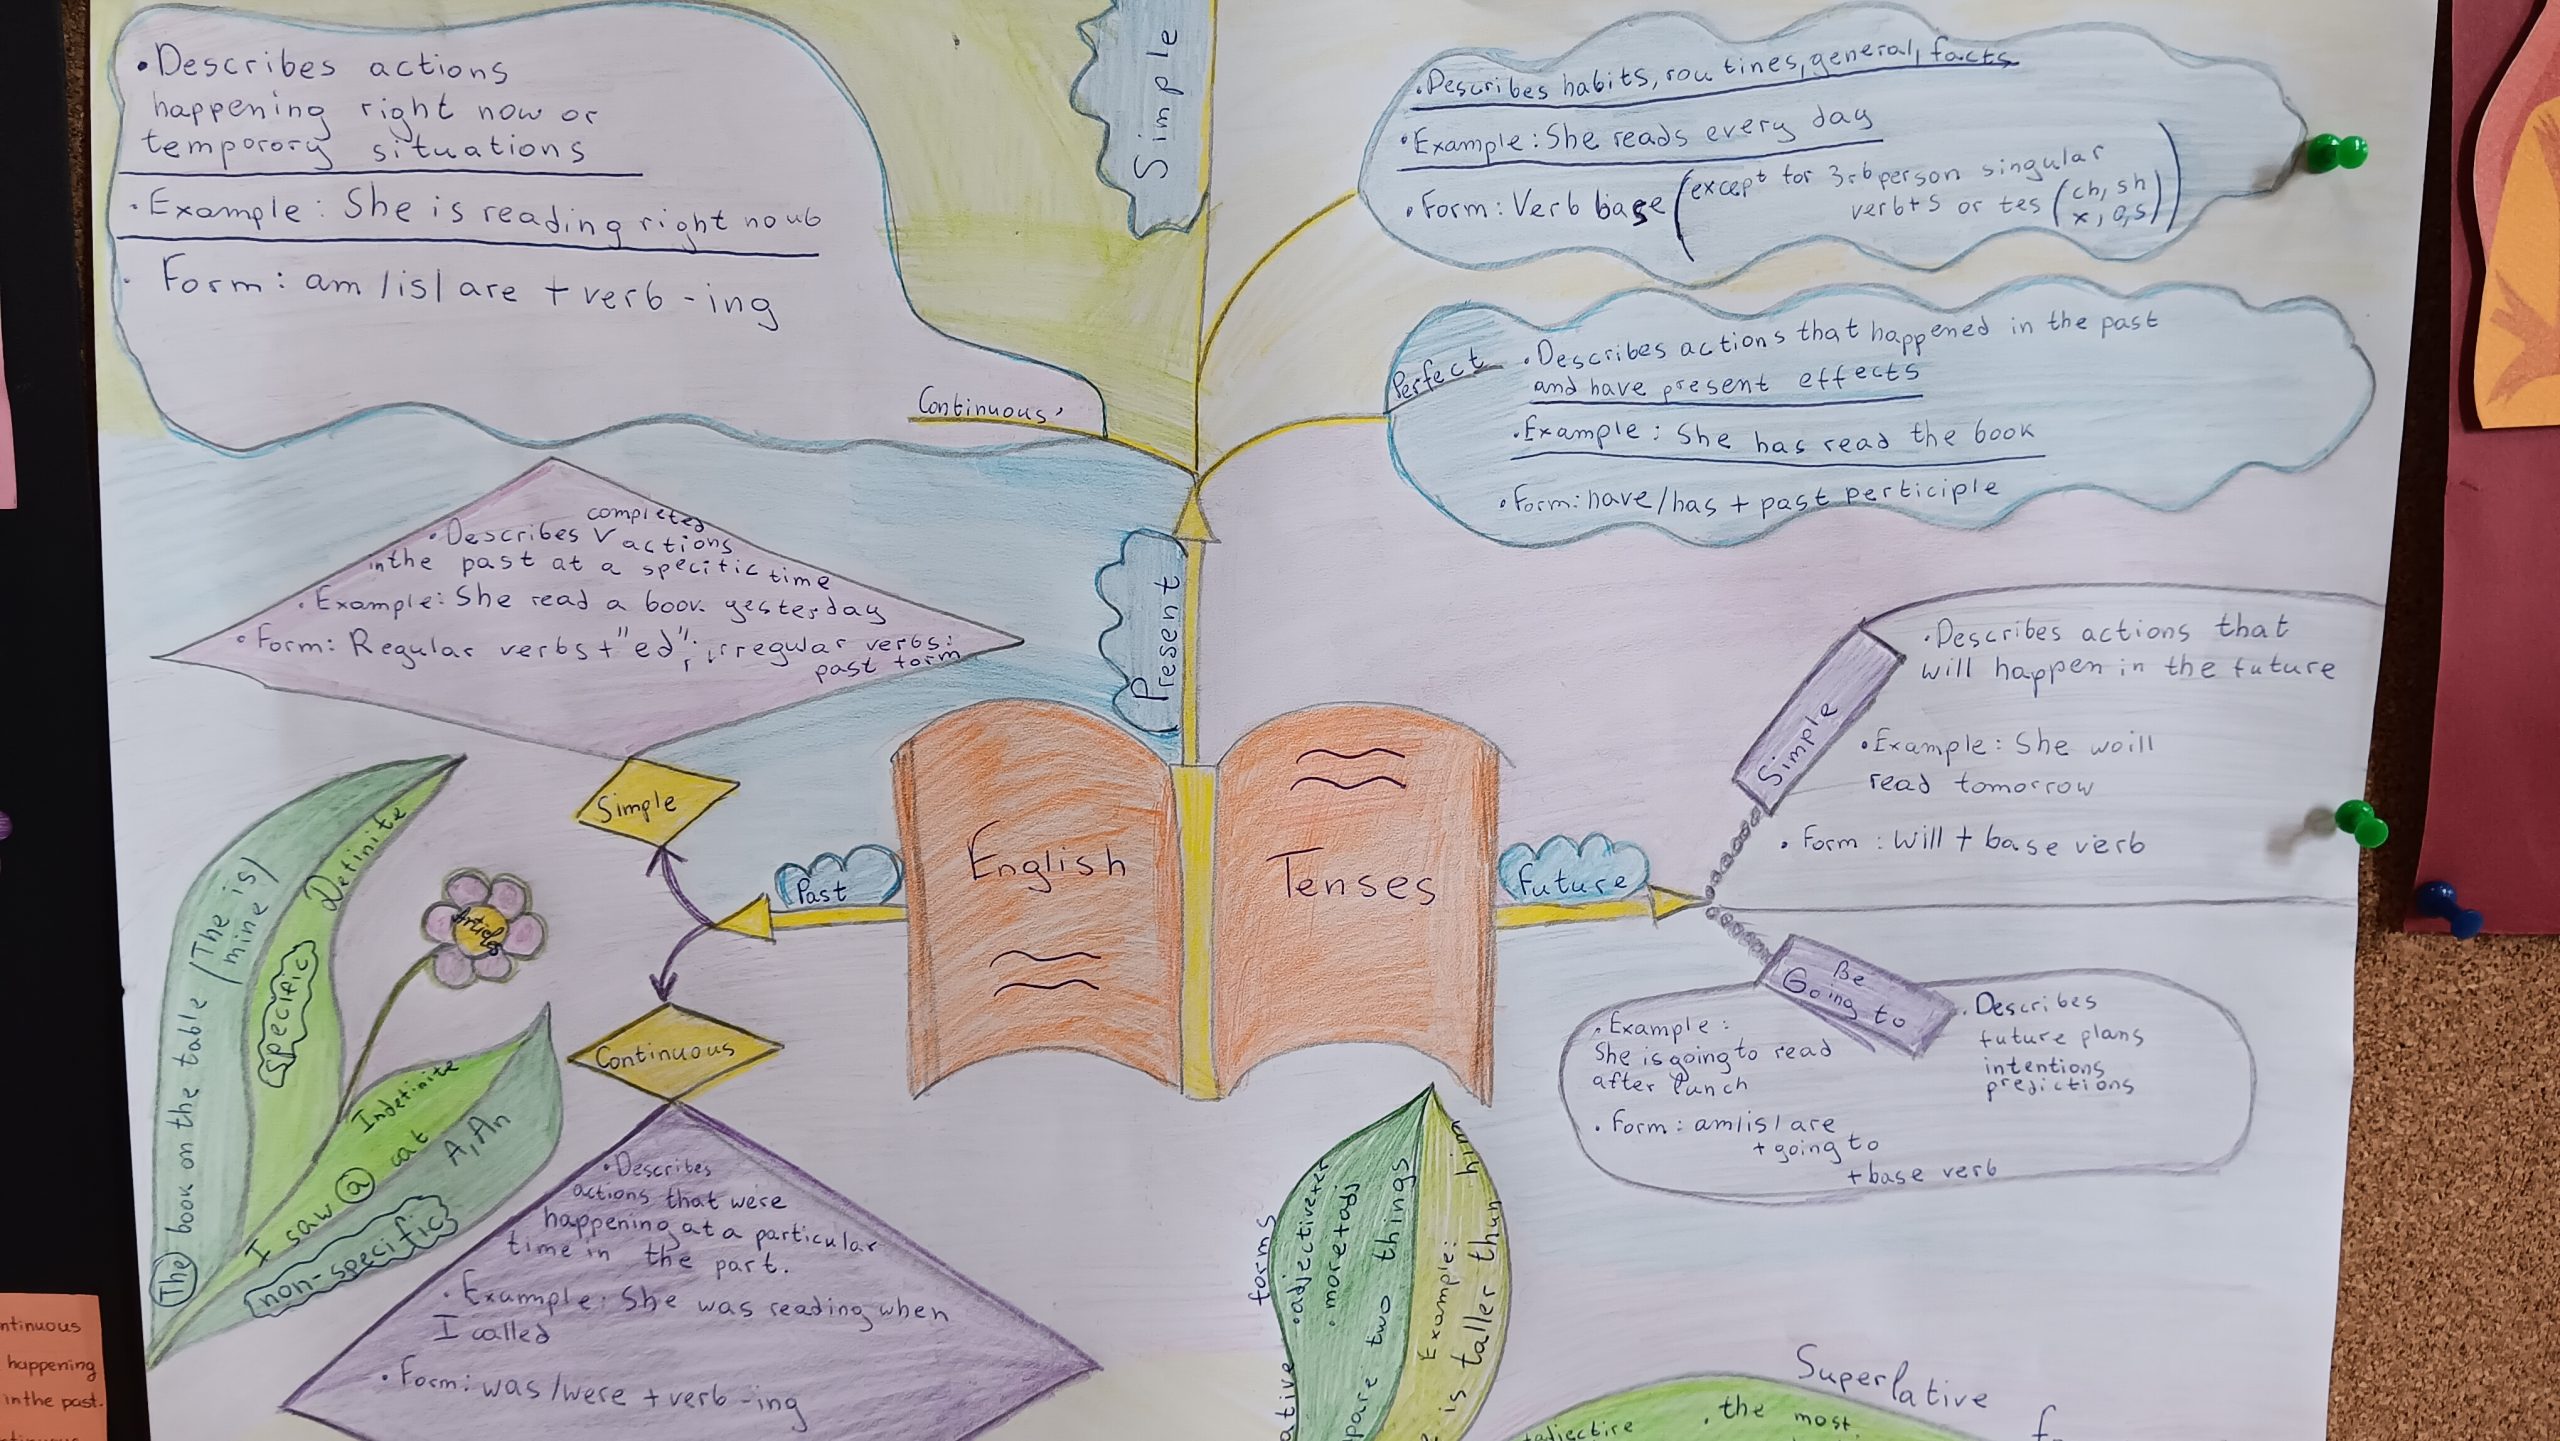 • Describes actions
happening right now or
temporory situations
• Example: She is reading right now
• Form: am/is/are + verb -ing
Continuous
Simple
• Describes habits, routines, general, facts
• Example: She reads every day
• Form: Verb base (except for 3rd person singular
verb+s or +es (ch, sh
x, o, s))
Perfect
• Describes actions that happened in the past
and have present effects
• Example: She has read the book
• Form: have/has + past perticiple
Present
completed
• Describes V actions
in the past at a specific time
• Example: She read a book yesterday
• Form: Regular verbs + "ed"; irregular verbs:
past form
Simple
Past
Continuous
• Describes
actions that were
happening at a particular
time in the part.
• Example: She was reading when
I called
• Form: was/were + verb -ing
English
Tenses
Future
Simple
• Describes actions that
will happen in the future
• Example: She woill
read tomorrow
• Form: will + base verb
Be
Going to
• Describes
future plans
intentions
predictions
• Example:
She is going to read
after lunch
• Form: am/is/are
+ going to
+ base verb
Articles
Definite
specific
The book on the table (The is)
mine
Indefinite
A, An
I saw a cat
non-specific
forms
• adjective+er
• more+adj
two things
Example:
is taller than him
Superlative
adjective
• the most
ntinuous
happening
in the past.